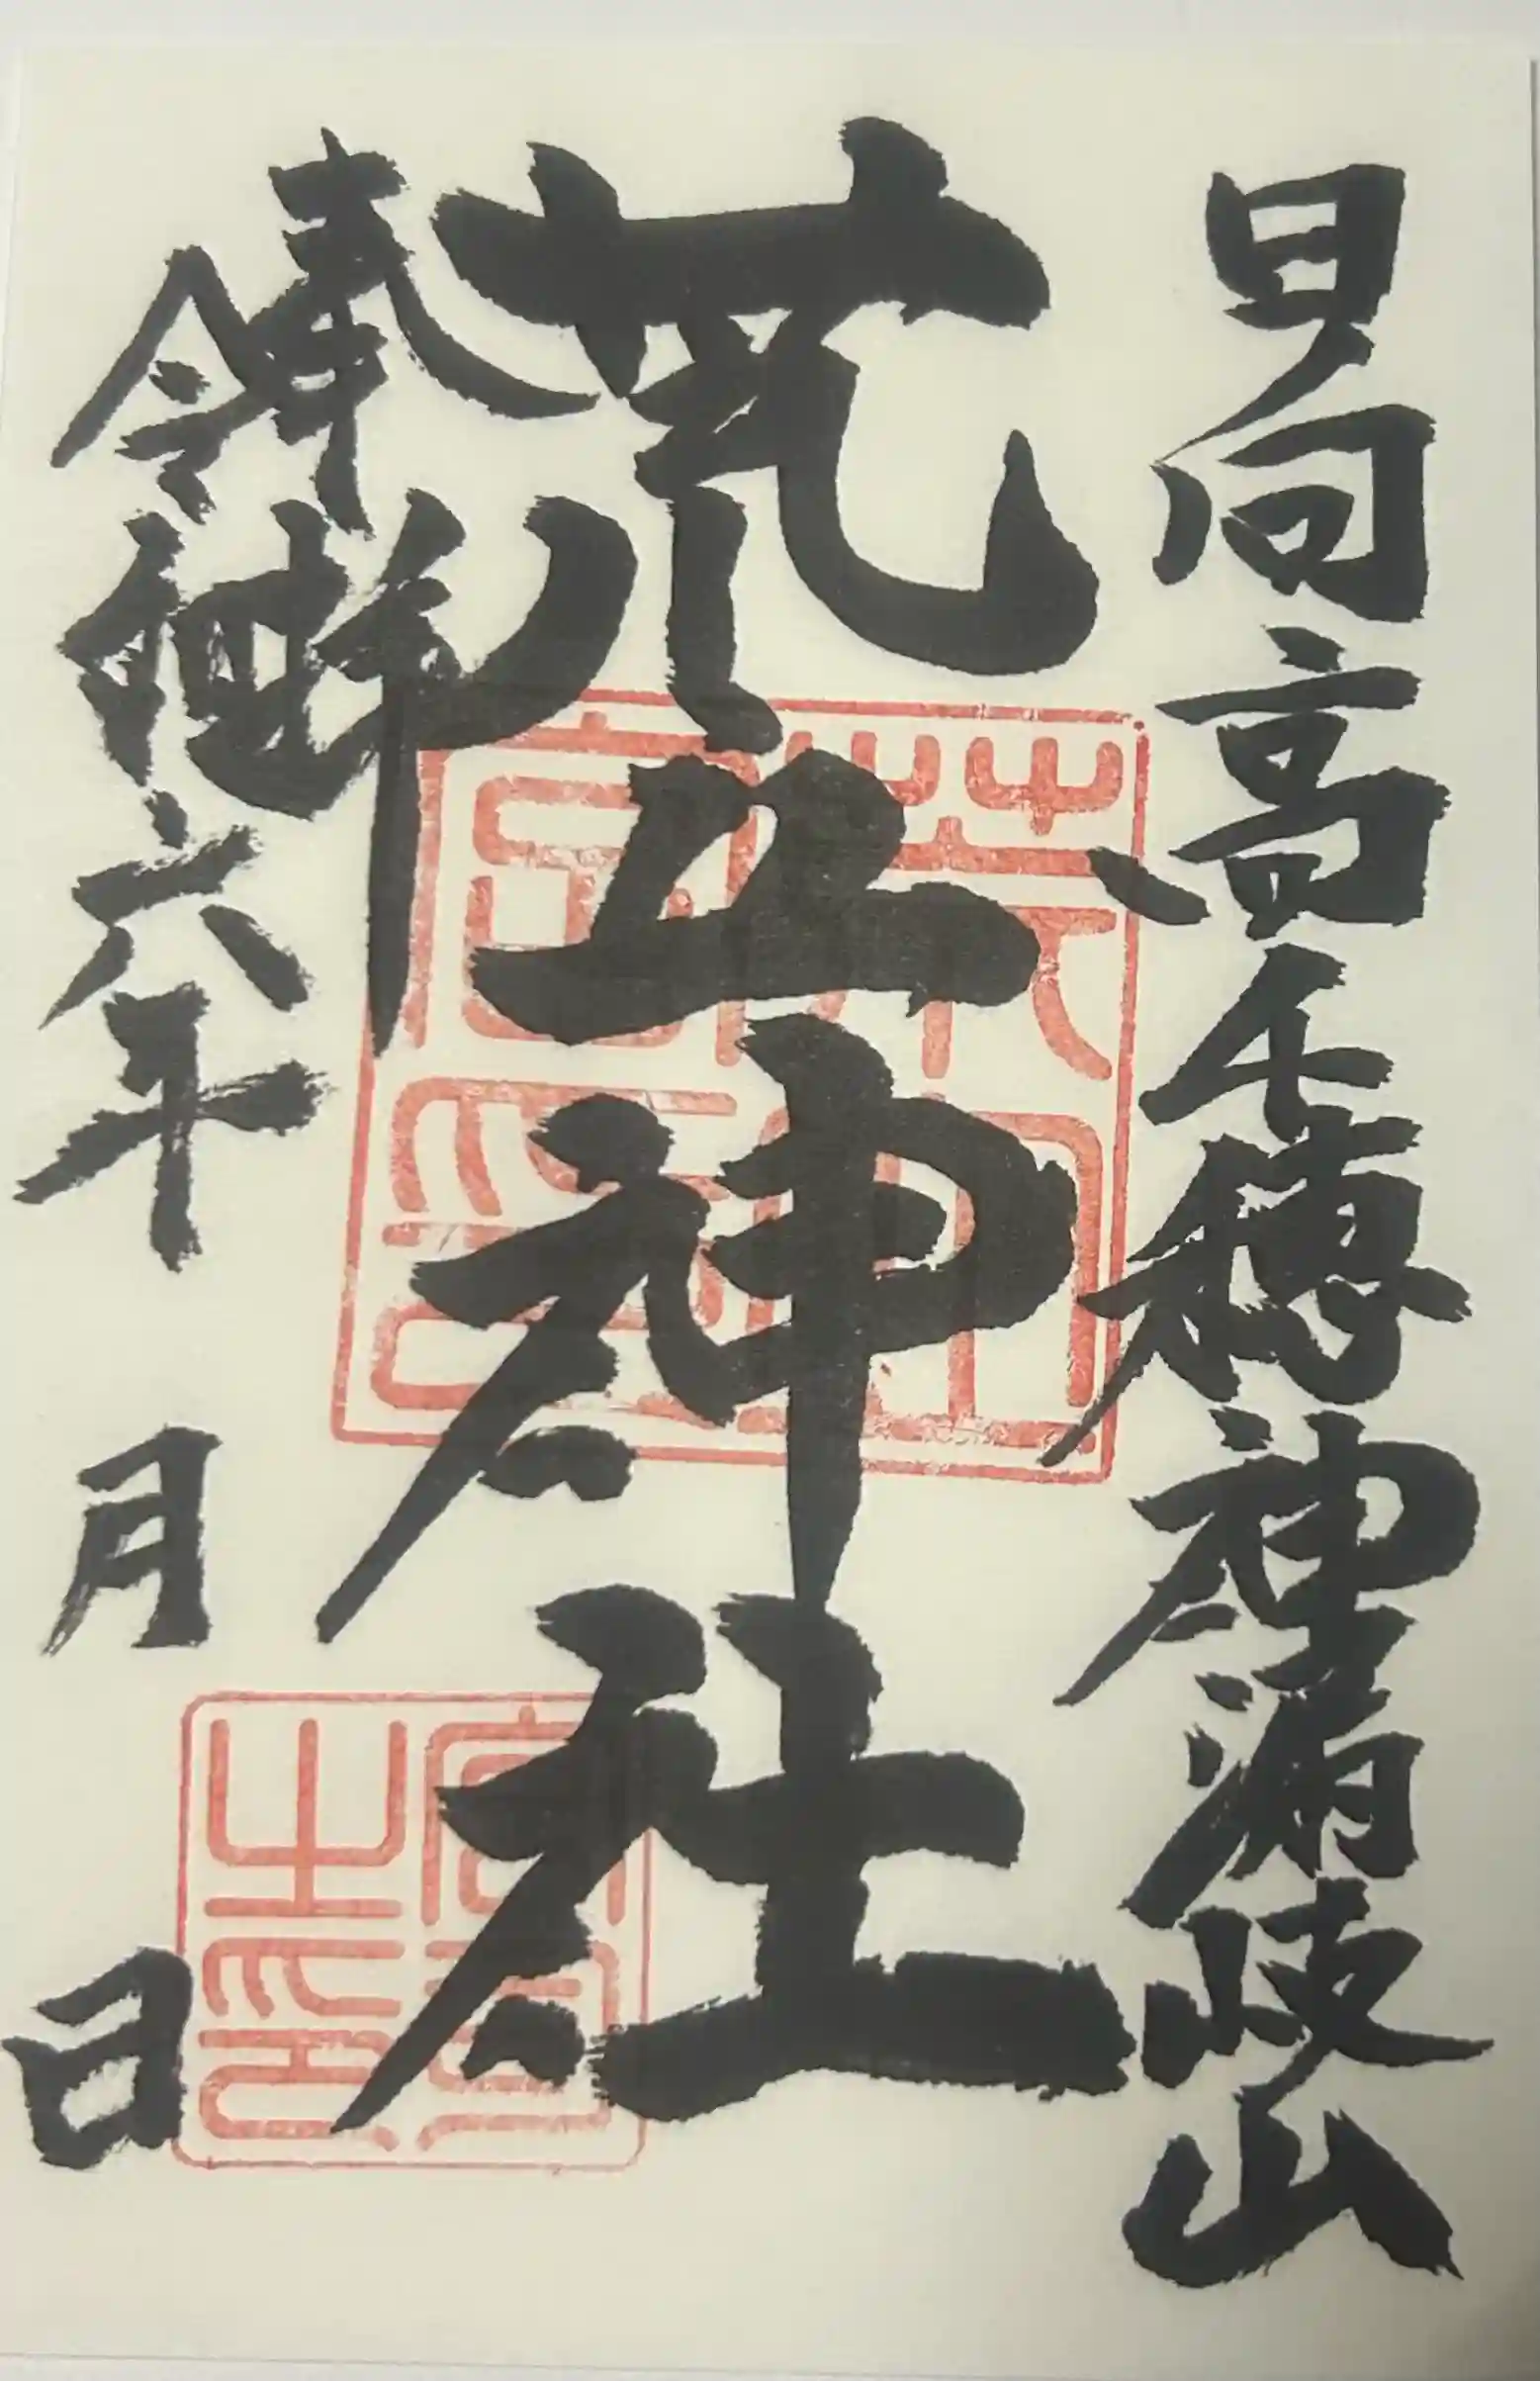 日向高千穂神漏岐山
荒立神社
奉拝
令和六年 月 日